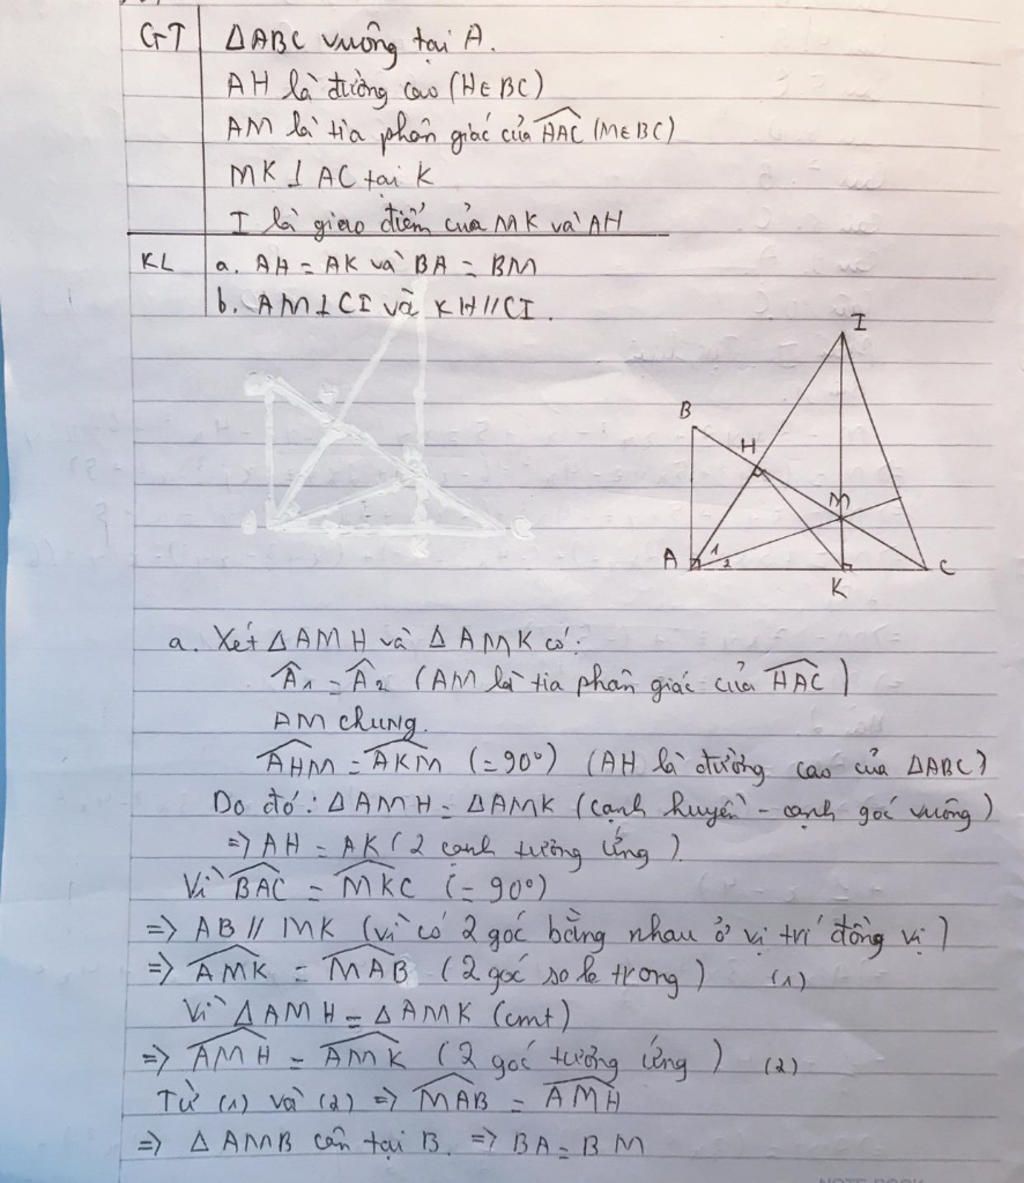 GT ΔABC vuông tại A.
AH là đường cao (H∈BC)
AM là tia phân giác của HAC (M∈BC)
MK ⊥ AC tại K
I là giao điểm của MK và AH
KL a. AH = AK và BA = BM
b. AM⊥CI và KH//CI.
I
B
H
M
A 1 2
K
C
a. Xét ΔAMH và ΔAMK có:
Â1 = Â2 (AM là tia phân giác của HAC)
AM chung.
AHM = AKM (=90°) (AH là đường cao của ΔABC)
Do đó: ΔAMH = ΔAMK (cạnh huyền - cạnh góc vuông)
=> AH = AK (2 cạnh tương ứng).
Vì BAC = MKC (=90°)
=> AB // MK (vì có 2 góc bằng nhau ở vị trí đồng vị)
=> AMK = MAB (2 góc so le trong) (1)
Vì ΔAMH = ΔAMK (cmt)
=> AMH = AMK (2 góc tương ứng) (2)
Từ (1) và (2) => MAB = AMH
=> ΔAMB cân tại B. => BA = BM